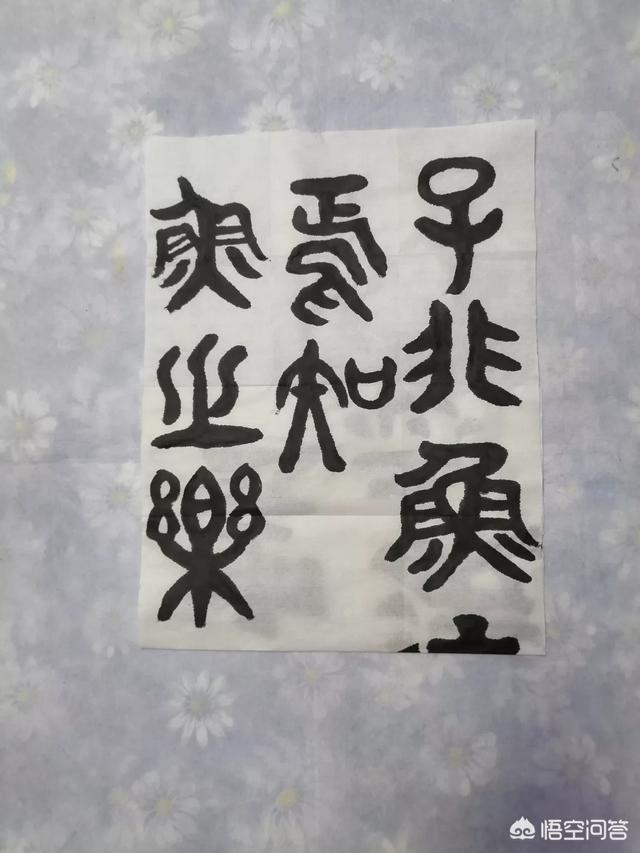 子非魚
焉知
魚之樂
悟空问答